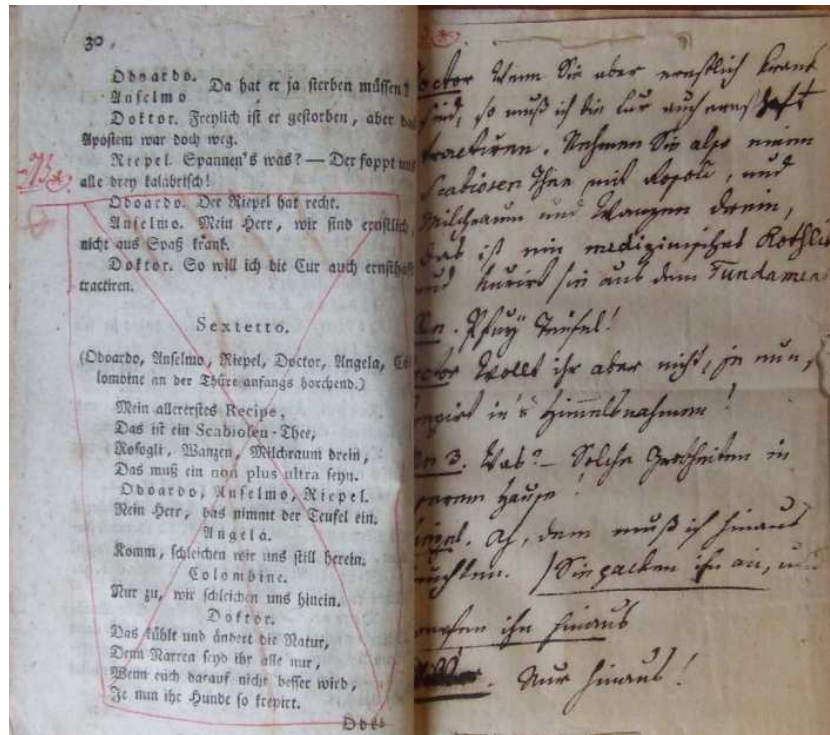 30
Odoardo.
Anselmo
Da hat er ja sterben müssen?
Doktor. Freylich ist er gestorben, aber das
Apostem war doch weg.
Riepel. Spannen's was? — Der foppt uns
alle drey kalabrisch!
Odoardo. Der Riepel hat recht.
Anselmo. Mein Herr, wir sind ernstlich,
nicht aus Spaß krank.
Doktor. So will ich die Cur auch ernsthaft
tractiren.
Sextetto.
(Odoardo, Anselmo, Riepel, Doctor, Angela, Co
lomoine an der Thüre anfangs horchend.)
Mein allererstes Recipe,
Das ist ein Scabiosen-Thee,
Rosogli, Wanzen, Milchraum drein,
Das muß ein non plus ultra seyn.
Odoardo, Anselmo, Riepel.
Mein Herr, das nimmt der Teufel ein.
Angela.
Komm, schleichen wir uns still herein.
Colombine.
Nur zu, wir schleichen uns hinein.
Doktor.
Das kühlt und ändert die Natur,
Denn Narren seyd ihr alle nur,
Wenn euch darauf nicht besser wird,
Je nun ihr Hunde so krepirt.
Odoa
Doctor Wenn Sie aber ernstlich krank
sind, so muß ich die Cur auch ernsthaft
tractiren. Nehmen Sie also einen
Scabiosen Thee mit Rosoli, und
Milchraum und Wanzen drein,
das ist ein medizinisches
und kurirt sie aus dem Fundamen
Pfuy Teufel!
Doctor Wollt ihr aber nicht, je nun,
krepirt in's Himmelsnahmen!
3. Was? — Solche Grobheiten in
unserm Hause!
Riepel. Ah, dem muß ich hinaus
leuchten. (Sie packen ihn an, und
werfen ihn hinaus
Nur hinaus!